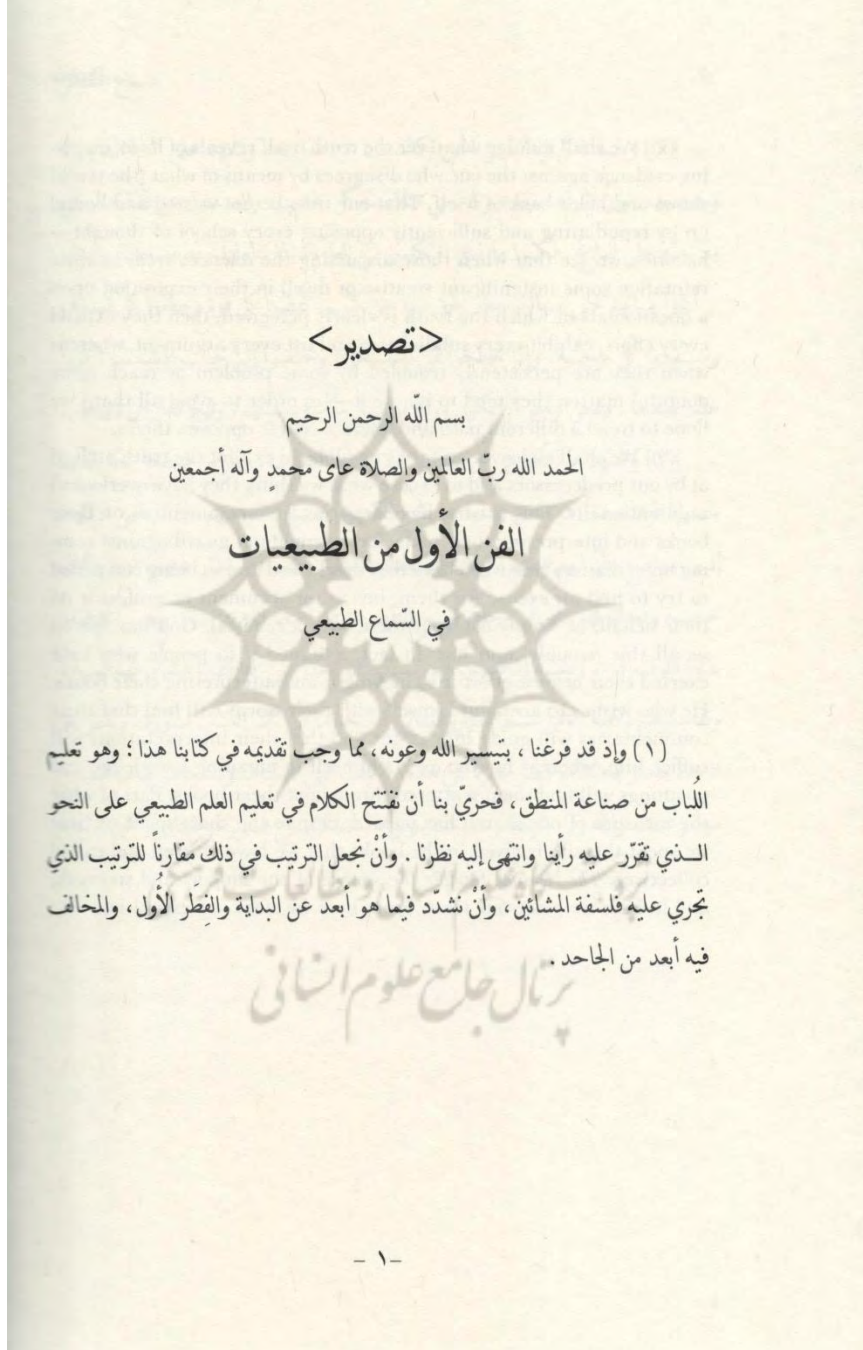 <تصدير>
بسم الله الرحمن الرحيم
الحمد الله ربّ العالمين والصلاة عاى محمدٍ وآله أجمعين
الفن الأول من الطبيعيات
في السّماع الطبيعي
(١) وإذ قد فرغنا ، بتيسير الله وعونه ، مما وجب تقديمه في كتابنا هذا ؛ وهو تعليم
اللُباب من صناعة المنطق ، فحريّ بنا أن نفتتح الكلام في تعليم العلم الطبيعي على النحو
الــذي تقرّر عليه رأينا وانتهى إليه نظرنا . وأنْ نجعل الترتيب في ذلك مقارناً للترتيب الذي
تجري عليه فلسفة المشائين ، وأنْ نشدّد فيما هو أبعد عن البداية والفِطَر الأُول ، والمخالف
فيه أبعد من الجاحد .
پرتال جامع علوم انسانی
– ١ –